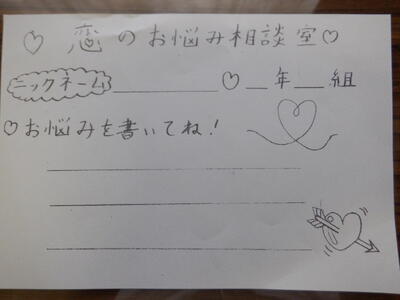 ♡恋のお悩み相談室♡
ニックネーム ____________ ♡__年__組
♡お悩みを書いてね！